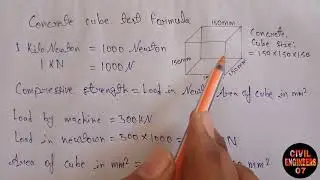 Concrete cube test formula
150mm
1 Kilo Newton = 1000 Newton
1 KN = 1000 N
150mm
150mm
Concrete
Cube size:
= 150×150×150
Compressive strength = Load in New Area of cube in mm²
Load by machine = 300KN
Load in newtown = 300×1000 = N
Area of cube in mm²
CIVIL
ENGINEERS
07